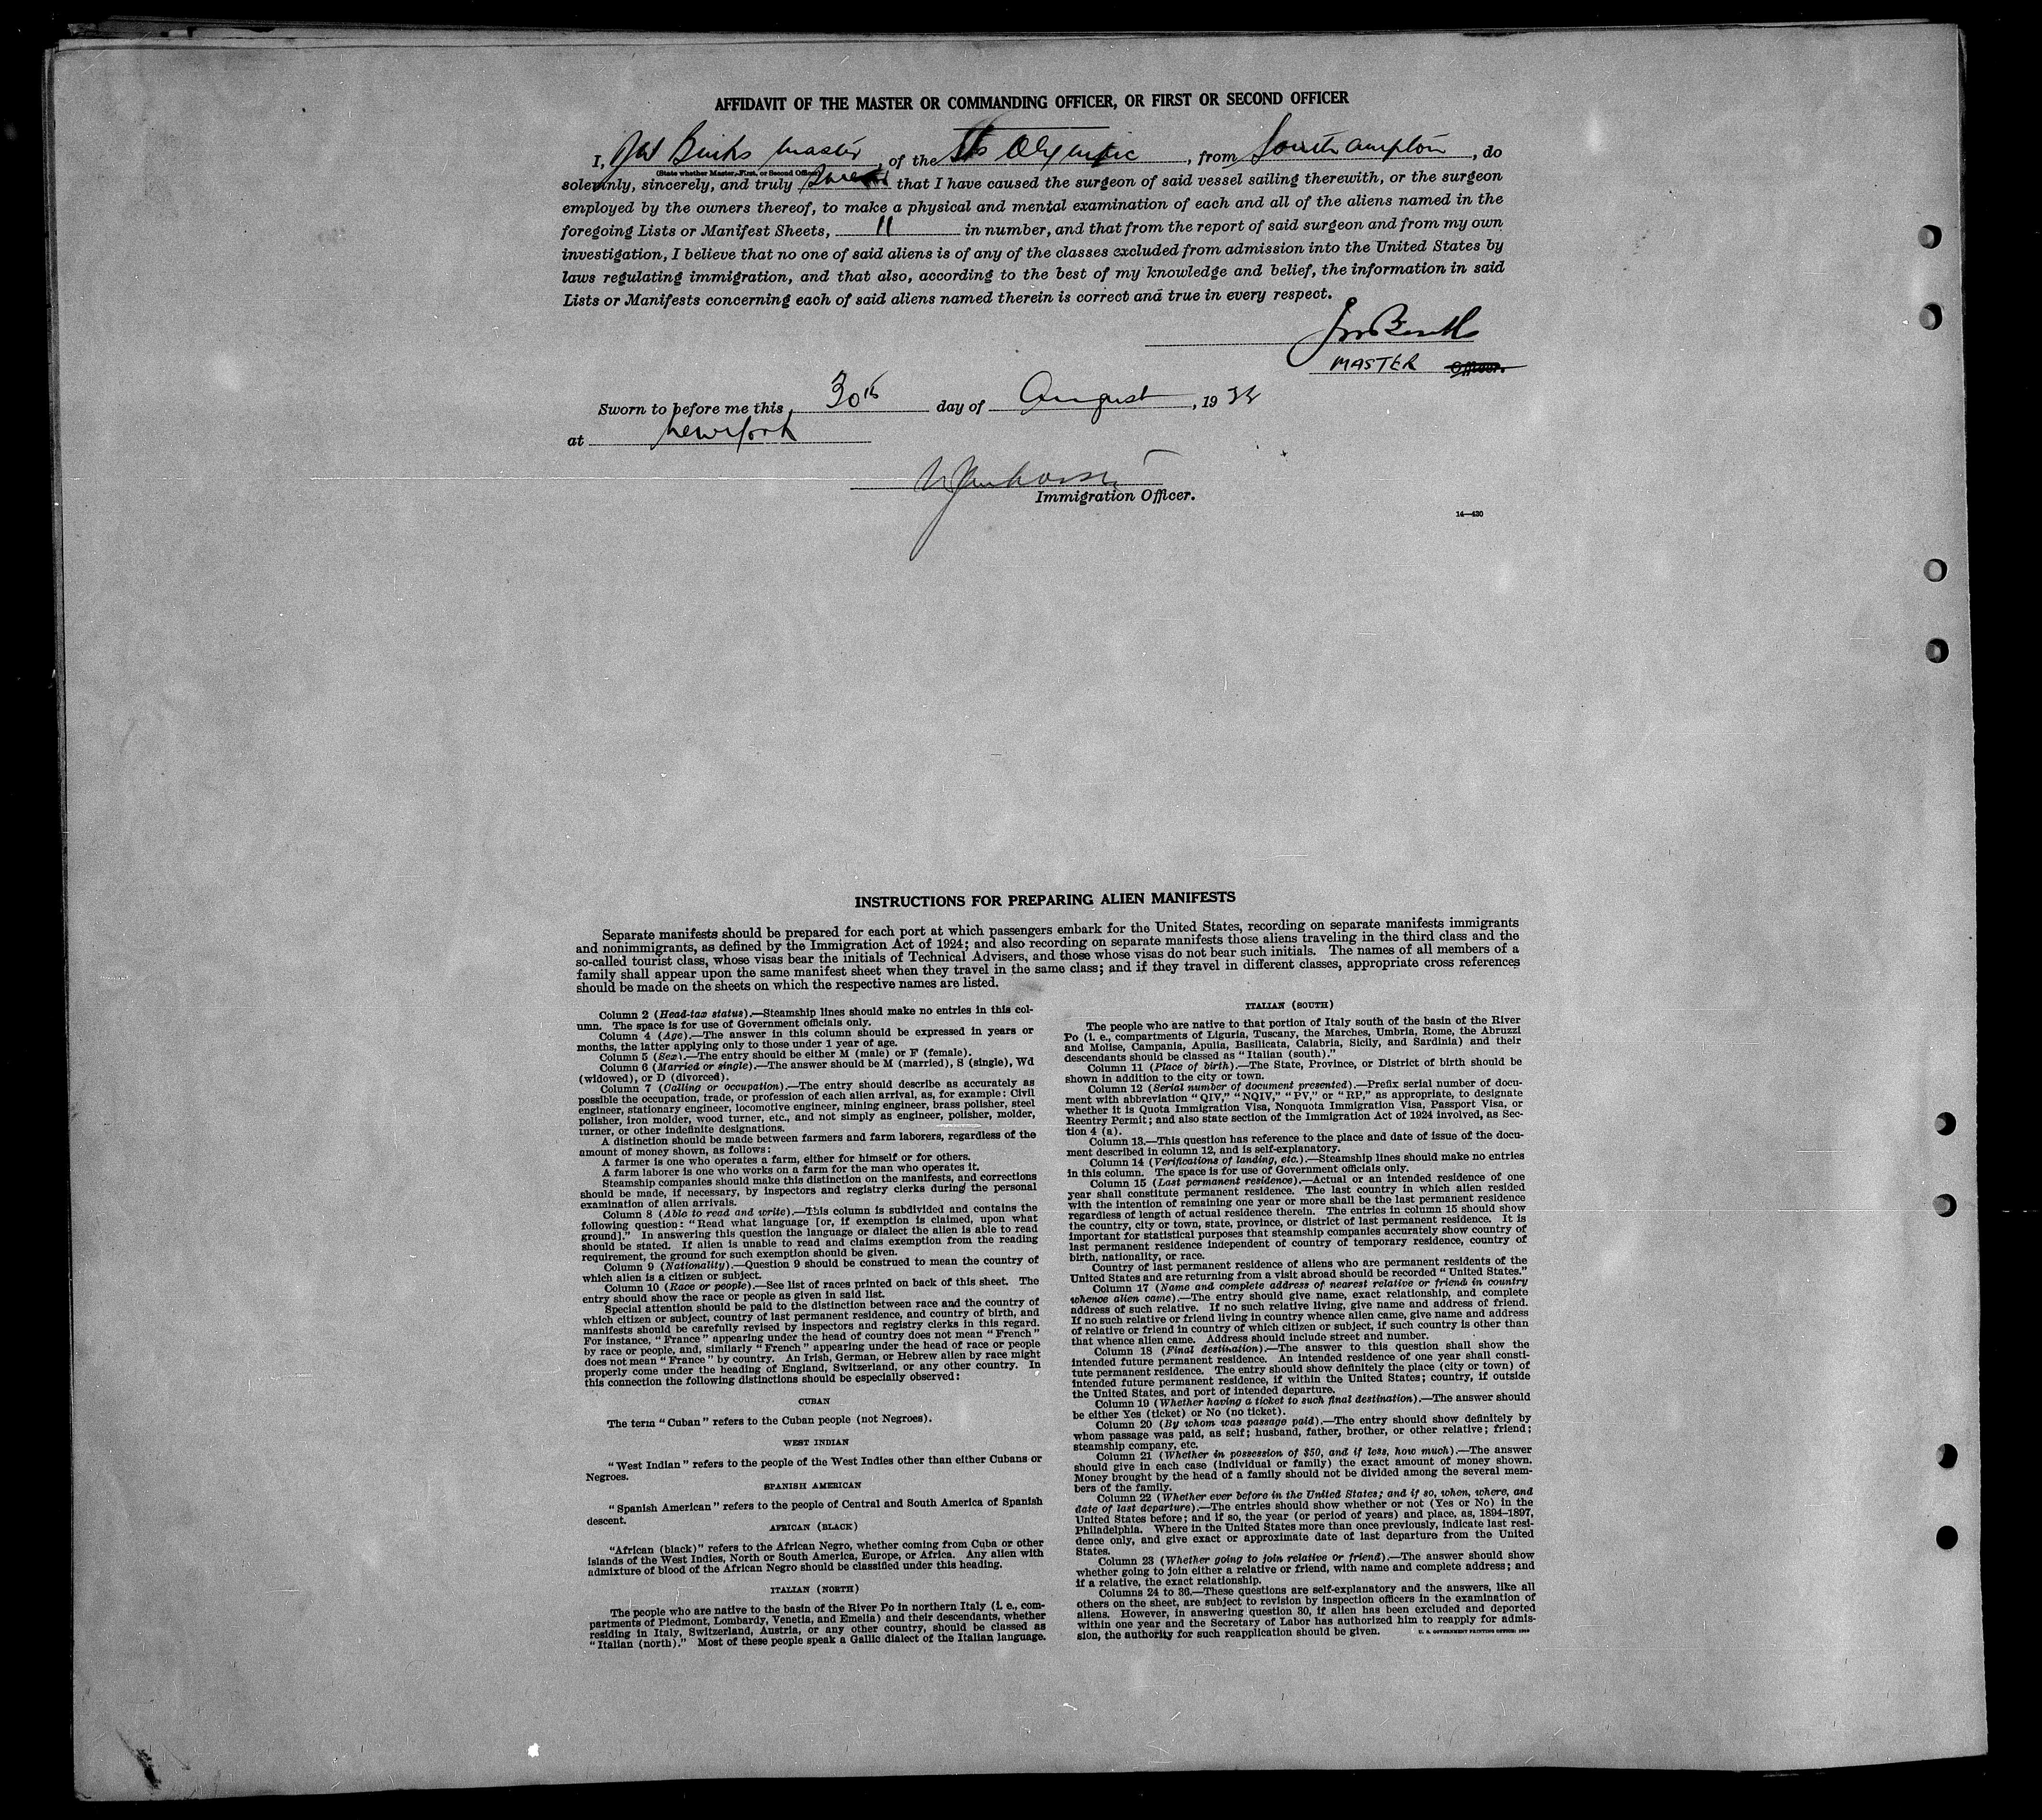 AFFIDAVIT OF THE MASTER OR COMMANDING OFFICER, OR FIRST OR SECOND OFFICER
I, JW Binks master, of the SS Olympic, from Southampton, do
(State whether Master, First, or Second Officer)
solemnly, sincerely, and truly swear that I have caused the surgeon of said vessel sailing therewith, or the surgeon
employed by the owners thereof, to make a physical and mental examination of each and all of the aliens named in the
foregoing Lists or Manifest Sheets, 11 in number, and that from the report of said surgeon and from my own
investigation, I believe that no one of said aliens is of any of the classes excluded from admission into the United States by
laws regulating immigration, and that also, according to the best of my knowledge and belief, the information in said
Lists or Manifests concerning each of said aliens named therein is correct and true in every respect.
MASTER Officer.
Sworn to before me this 30th day of August, 19
at New York
Immigration Officer.
14—430
INSTRUCTIONS FOR PREPARING ALIEN MANIFESTS
Separate manifests should be prepared for each port at which passengers embark for the United States, recording on separate manifests immigrants
and nonimmigrants, as defined by the Immigration Act of 1924; and also recording on separate manifests those aliens traveling in the third class and the
so-called tourist class, whose visas bear the initials of Technical Advisers, and those whose visas do not bear such initials. The names of all members of a
family shall appear upon the same manifest sheet when they travel in the same class; and if they travel in different classes, appropriate cross references
should be made on the sheets on which the respective names are listed.
Column 2 (Head-tax status).—Steamship lines should make no entries in this col-
umn. The space is for use of Government officials only.
Column 4 (Age).—The answer in this column should be expressed in years or
months, the latter applying only to those under 1 year of age.
Column 5 (Sex).—The entry should be either M (male) or F (female).
Column 6 (Married or single).—The answer should be M (married), S (single), Wd
(widowed), or D (divorced).
Column 7 (Calling or occupation).—The entry should describe as accurately as
possible the occupation, trade, or profession of each alien arrival, as, for example: Civil
engineer, stationary engineer, locomotive engineer, mining engineer, brass polisher, steel
polisher, iron molder, wood turner, etc., and not simply as engineer, polisher, molder,
turner, or other indefinite designations.
A distinction should be made between farmers and farm laborers, regardless of the
amount of money shown, as follows:
A farmer is one who operates a farm, either for himself or for others.
A farm laborer is one who works on a farm for the man who operates it.
Steamship companies should make this distinction on the manifests, and corrections
should be made, if necessary, by inspectors and registry clerks during the personal
examination of alien arrivals.
Column 8 (Able to read and write).—This column is subdivided and contains the
following question: "Read what language [or, if exemption is claimed, upon what
ground]." In answering this question the language or dialect the alien is able to read
should be stated. If alien is unable to read and claims exemption from the reading
requirement, the ground for such exemption should be given.
Column 9 (Nationality).—Question 9 should be construed to mean the country of
which alien is a citizen or subject.
Column 10 (Race or people).—See list of races printed on back of this sheet. The
entry should show the race or people as given in said list.
Special attention should be paid to the distinction between race and the country of
which citizen or subject, country of last permanent residence, and country of birth, and
manifests should be carefully revised by inspectors and registry clerks in this regard.
For instance, "France" appearing under the head of country does not mean "French"
by race or people, and, similarly "French" appearing under the head of race or people
does not mean "France" by country. An Irish, German, or Hebrew alien by race might
properly come under the heading of England, Switzerland, or any other country. In
this connection the following distinctions should be especially observed:
CUBAN
The term "Cuban" refers to the Cuban people (not Negroes).
WEST INDIAN
"West Indian" refers to the people of the West Indies other than either Cubans or
Negroes.
SPANISH AMERICAN
"Spanish American" refers to the people of Central and South America of Spanish
descent.
AFRICAN (BLACK)
"African (black)" refers to the African Negro, whether coming from Cuba or other
islands of the West Indies, North or South America, Europe, or Africa. Any alien with
admixture of blood of the African Negro should be classified under this heading.
ITALIAN (NORTH)
The people who are native to the basin of the River Po in northern Italy (i. e., com-
partments of Piedmont, Lombardy, Venetia, and Emelia) and their descendants, whether
residing in Italy, Switzerland, Austria, or any other country, should be classed as
"Italian (north)." Most of these people speak a Gallic dialect of the Italian language.
ITALIAN (SOUTH)
The people who are native to that portion of Italy south of the basin of the River
Po (i. e., compartments of Liguria, Tuscany, the Marches, Umbria, Rome, the Abruzzi
and Molise, Campania, Apulia, Basilicata, Calabria, Sicily, and Sardinia) and their
descendants should be classed as "Italian (south)."
Column 11 (Place of birth).—The State, Province, or District of birth should be
shown in addition to the city or town.
Column 12 (Serial number of document presented).—Prefix serial number of docu-
ment with abbreviation "QIV," "NQIV," "PV," or "RP," as appropriate, to designate
whether it is Quota Immigration Visa, Nonquota Immigration Visa, Passport Visa, or
Reentry Permit; and also state section of the Immigration Act of 1924 involved, as Sec-
tion 4 (a).
Column 13.—This question has reference to the place and date of issue of the docu-
ment described in column 12, and is self-explanatory.
Column 14 (Verifications of landing, etc.).—Steamship lines should make no entries
in this column. The space is for use of Government officials only.
Column 15 (Last permanent residence).—Actual or an intended residence of one
year shall constitute permanent residence. The last country in which alien resided
with the intention of remaining one year or more shall be the last permanent residence
regardless of length of actual residence therein. The entries in column 15 should show
the country, city or town, state, province, or district of last permanent residence. It is
important for statistical purposes that steamship companies accurately show country of
last permanent residence independent of country of temporary residence, country of
birth, nationality, or race.
Country of last permanent residence of aliens who are permanent residents of the
United States and are returning from a visit abroad should be recorded "United States."
Column 17 (Name and complete address of nearest relative or friend in country
whence alien came).—The entry should give name, exact relationship, and complete
address of such relative. If no such relative living, give name and address of friend.
If no such relative or friend living in country whence alien came, give name and address
of relative or friend in country of which citizen or subject, if such country is other than
that whence alien came. Address should include street and number.
Column 18 (Final destination).—The answer to this question shall show the
intended future permanent residence. An intended residence of one year shall consti-
tute permanent residence. The entry should show definitely the place (city or town) of
intended future permanent residence, if within the United States; country, if outside
the United States, and port of intended departure.
Column 19 (Whether having a ticket to such final destination).—The answer should
be either Yes (ticket) or No (no ticket).
Column 20 (By whom was passage paid).—The entry should show definitely by
whom passage was paid, as self; husband, father, brother, or other relative; friend;
steamship company, etc.
Column 21 (Whether in possession of $50, and if less, how much).—The answer
should give in each case (individual or family) the exact amount of money shown.
Money brought by the head of a family should not be divided among the several mem-
bers of the family.
Column 22 (Whether ever before in the United States; and if so, when, where, and
date of last departure).—The entries should show whether or not (Yes or No) in the
United States before; and if so, the year (or period of years) and place, as, 1894–1897,
Philadelphia. Where in the United States more than once previously, indicate last resi-
dence only, and give exact or approximate date of last departure from the United
States.
Column 23 (Whether going to join relative or friend).—The answer should show
whether going to join either a relative or friend, with name and complete address; and
if a relative, the exact relationship.
Columns 24 to 36.—These questions are self-explanatory and the answers, like all
others on the sheet, are subject to revision by inspection officers in the examination of
aliens. However, in answering question 30, if alien has been excluded and deported
within one year and the Secretary of Labor has authorized him to reapply for admis-
sion, the authority for such reapplication should be given.
U. S. GOVERNMENT PRINTING OFFICE: